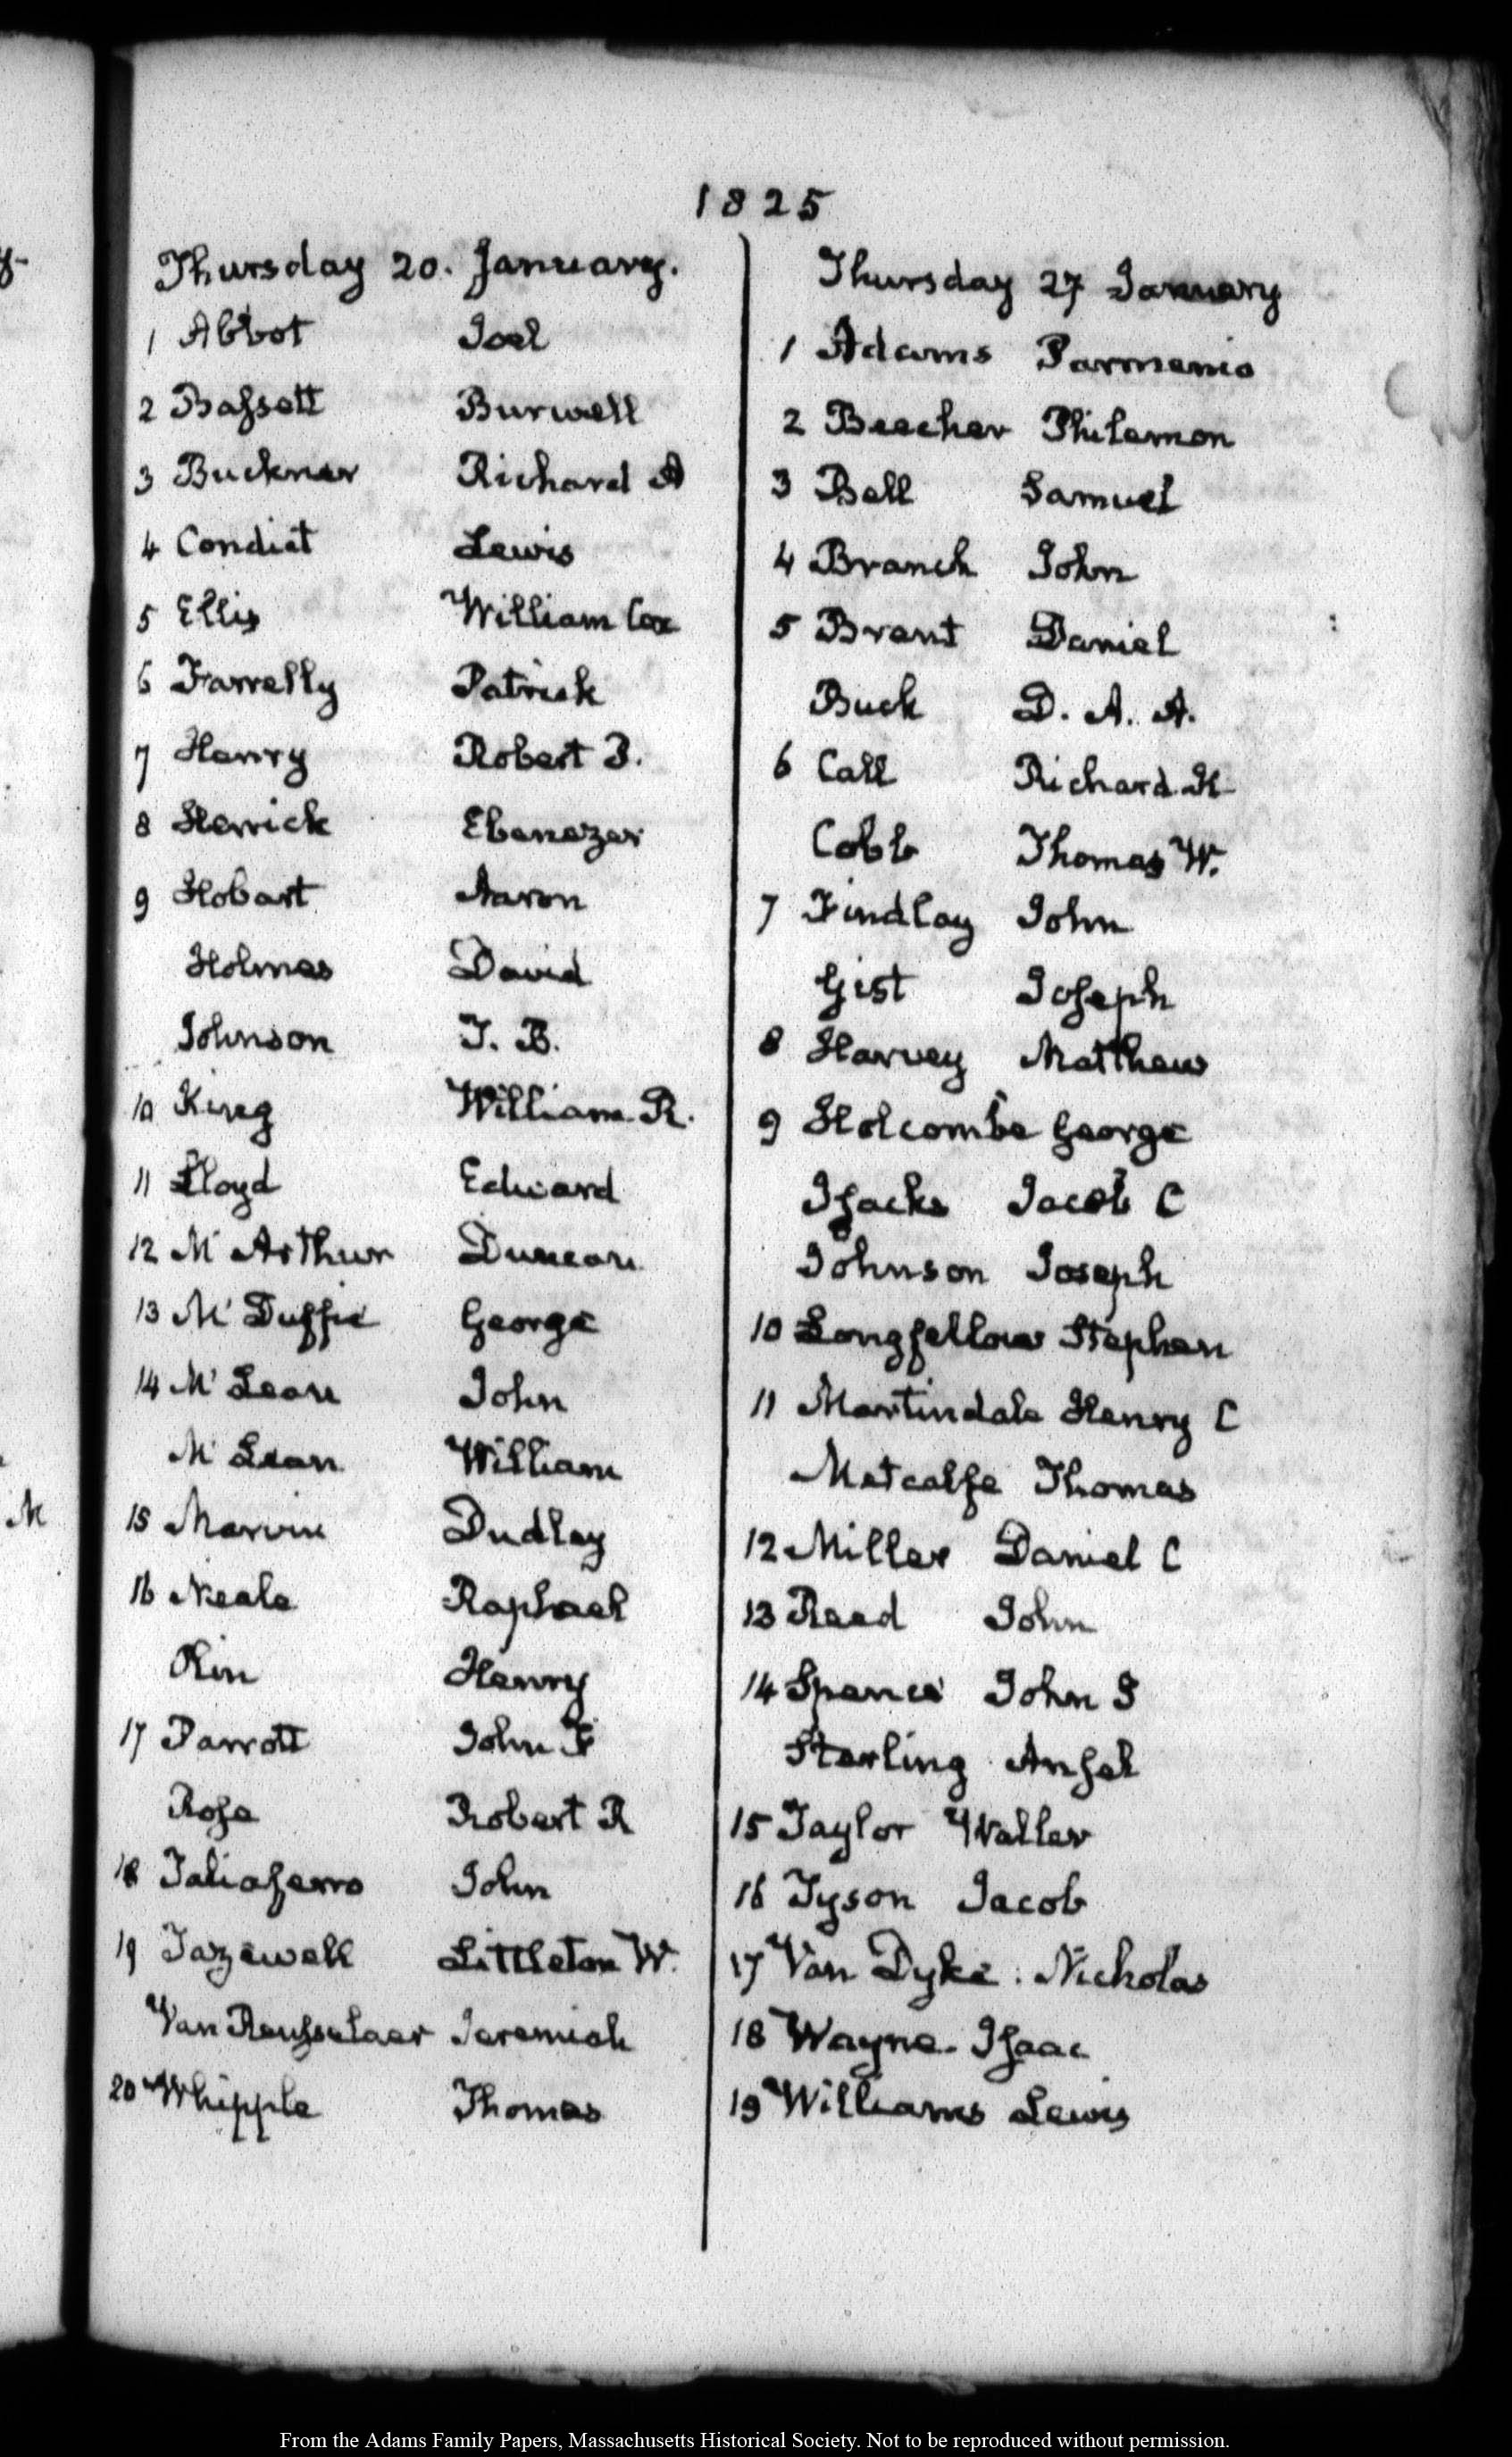 1825
Thursday 20. January.
1 Abbot Joel
2 Bassett Burwell
3 Buckner Richard A
4 Condict Lewis
5 Ellis William Cox
6 Farrelly Patrick
7 Henry Robert P.
8 Herrick Ebenezer
9 Hobart Aaron
Holmes David
Johnson J. B.
10 King William R.
11 Lloyd Edward
12 McArthur Duncan
13 McDuffie George
14 McLean John
McLean William
15 Marvin Dudley
16 Neale Raphael
Olin Henry
17 Parrott John F
Rose Robert R
18 Taliaferro John
19 Tazewell Littleton W.
Van Rensselaer Jeremiah
20 Whipple Thomas
Thursday 27 January
1 Adams Parmenio
2 Beecher Philemon
3 Bell Samuel
4 Branch John
5 Brent Daniel
Buck D. A. A.
6 Call Richard K
Cobb Thomas W.
7 Findlay John
Gist Joseph
8 Harvey Matthew
9 Holcombe George
Isacks Jacob C
Johnson Joseph
10 Longfellow Stephen
11 Martindale Henry C
Metcalfe Thomas
12 Miller Daniel C
13 Reed John
14 Spence John S
Sterling Ansel
15 Taylor Waller
16 Tyson Jacob
17 Van Dyke: Nicholas
18 Wayne. Isaac
19 Williams Lewis
M
From the Adams Family Papers, Massachusetts Historical Society. Not to be reproduced without permission.